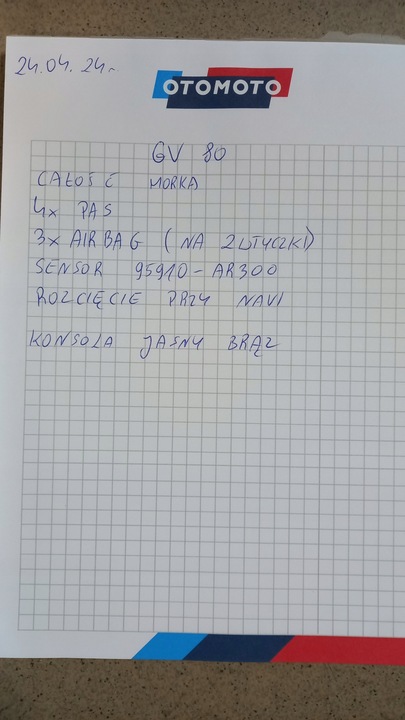 24.04.24r
OTOMOTO
GV 80
CAŁOŚĆ MORKA
4x PAS
3x AIRBAG ( NA 2 WTYCZKI)
SENSOR 95910-AR300
ROZCIĘCIE PRZY NAVI
KONSOLA JASNY BRĄZ